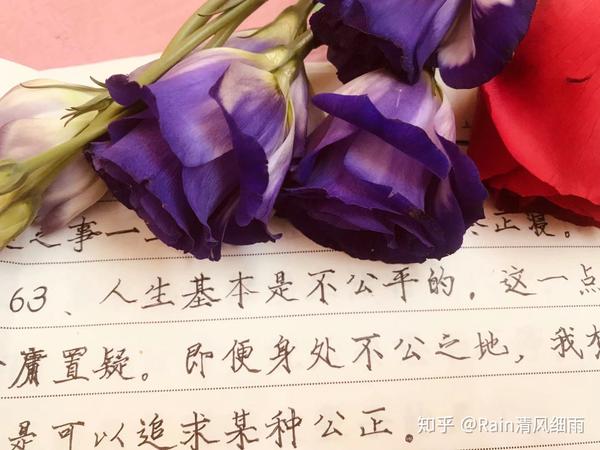 之事一 正寝。
63、人生基本是不公平的，这一点
庸置疑。即便身处不公之地，我
是可以追求某种公正。
知乎 @Rain清风细雨